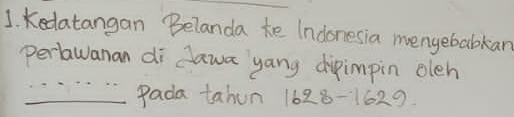 1. Kedatangan Belanda ke Indonesia menyebabkan
perlawanan di Jawa yang dipimpin oleh
........ Pada tahun 1628-1629.